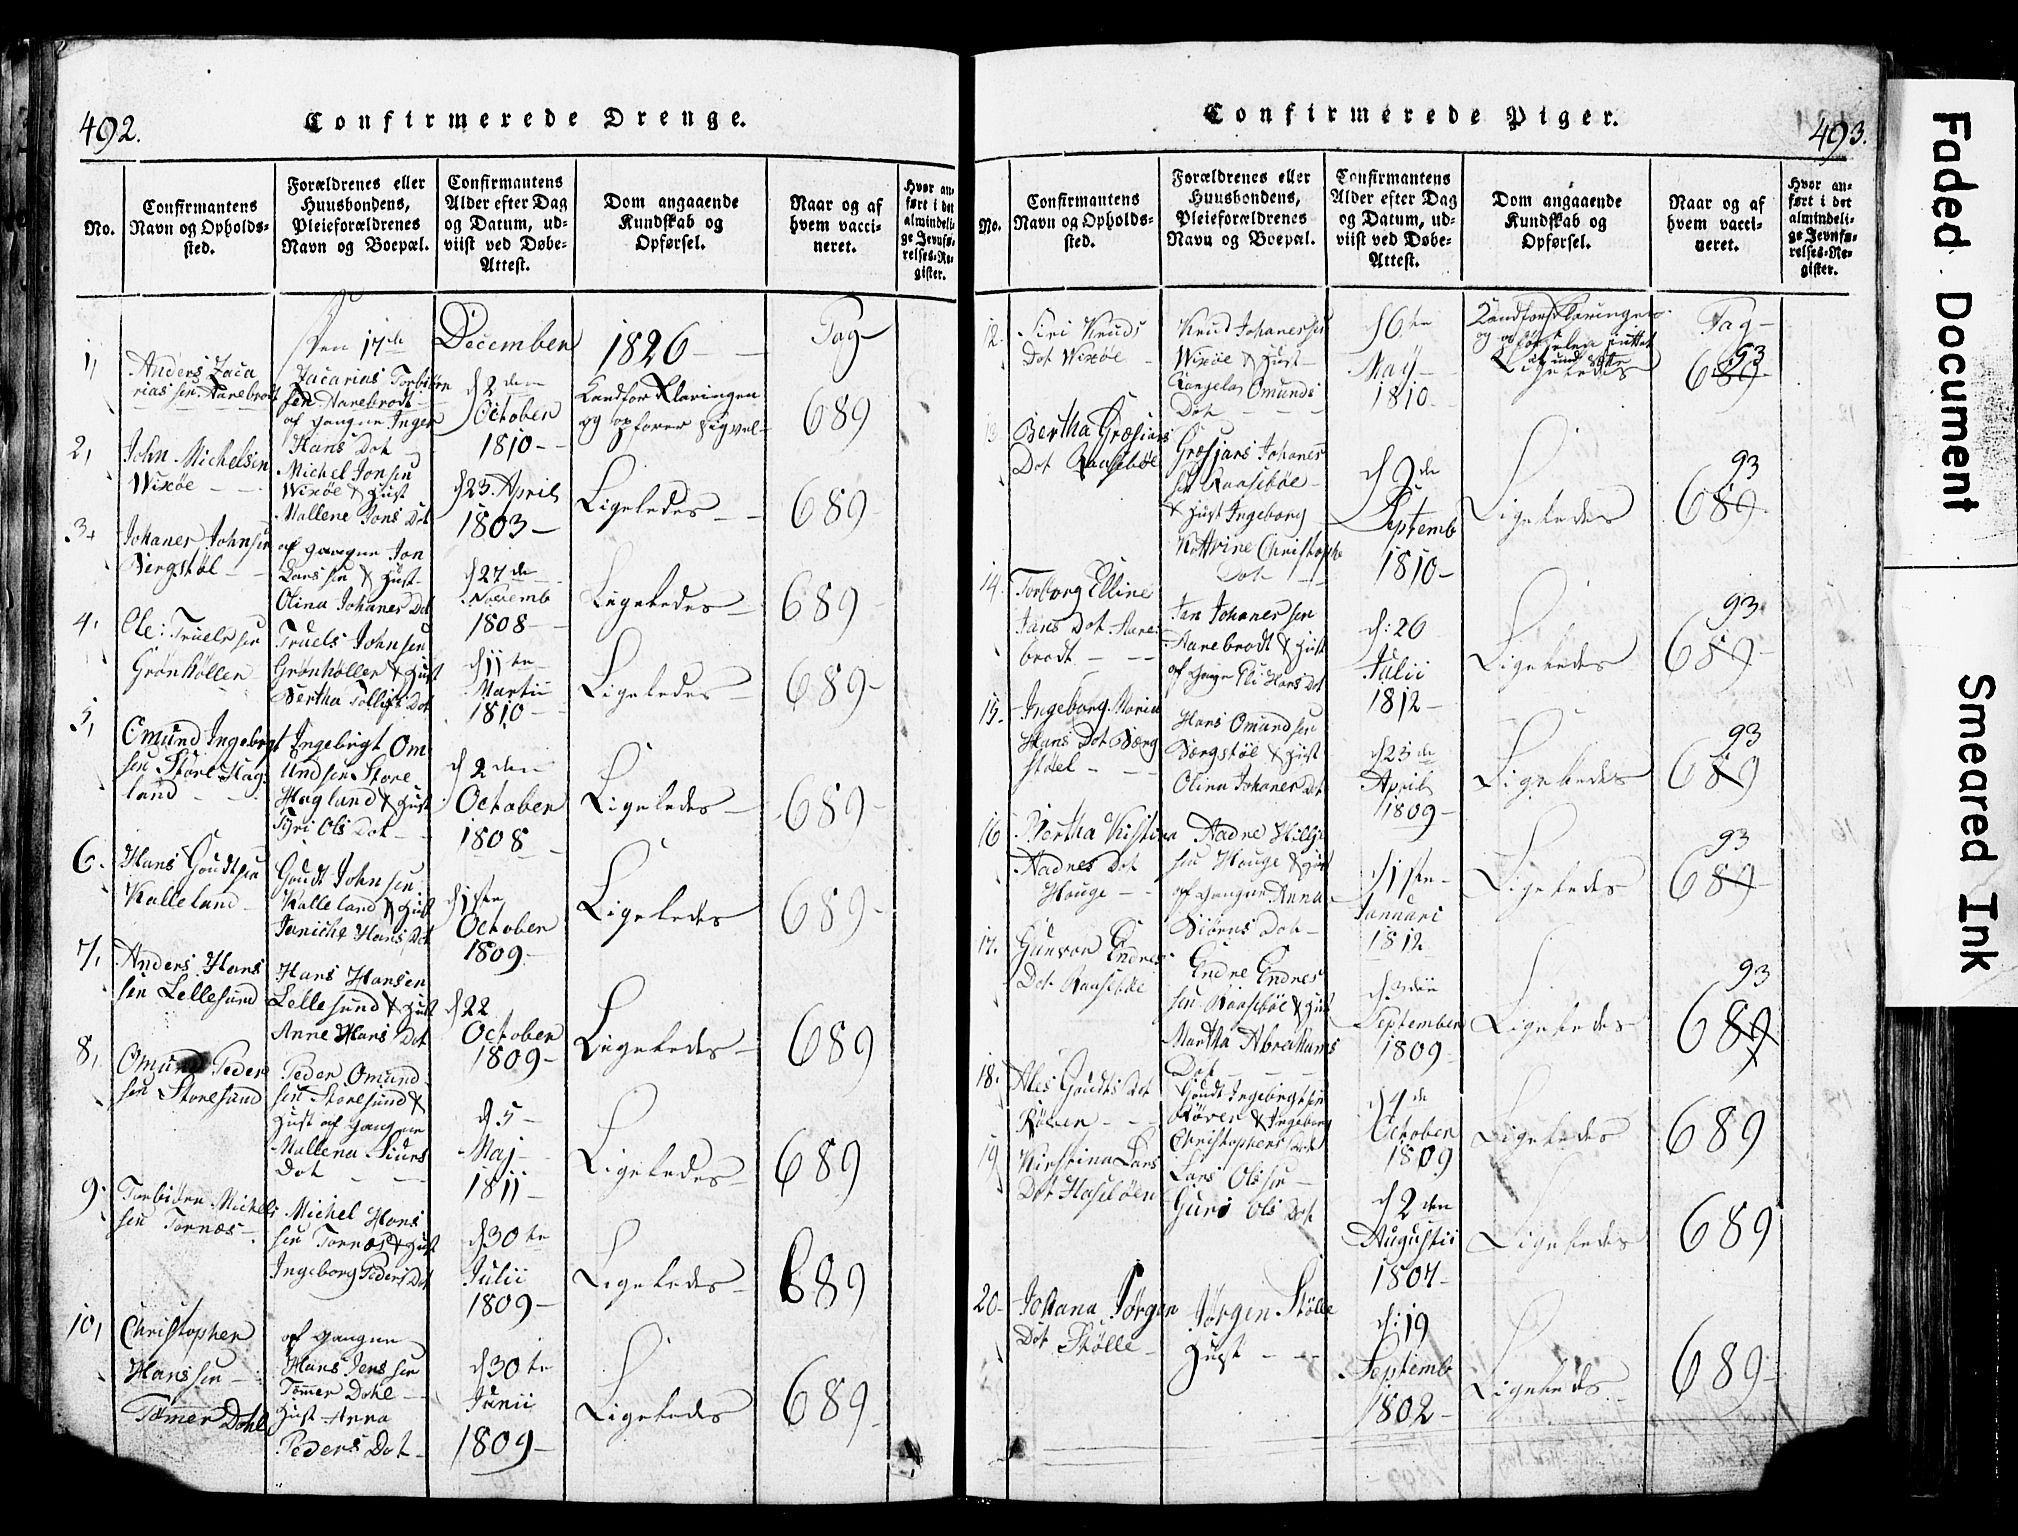 492.
Confirmerede Drenge.
No.
Confirmantens
Navn og Opholds-
sted.
Forældrenes eller
Huusbondens,
Pleieforældrenes
Navn og Boepæl.
Confirmantens
Alder efter Dag
og Datum, ud-
viist ved Døbe-
Attest.
Dom angaaende
Kundskab og
Opførsel.
Naar og af
hvem vacci-
neret.
Hvor an-
ført i det
almindeli-
ge Jevnfø-
relses-Re-
gister.
Den 17de December 1826 Pag
1,
Anders Zaca
rias sen Aarebrodt
Zacarias Torbiørn
sen Aarebrodt
af gangne Inger
Hans Dot
d 2den
October
1810
og opfører sig vel
689
2,
John Michelsen
Wixøe
Michel Jonsen
Wixøe & Hust
Mallene Jons Dot
d 23. April
1803
Ligeledes
689
3,
Johaner Johnsen
Bergstøl
af gangne Jon
Lars sen & Hust
Olina Johaner Dot
d 27de
Novemb
1808
Ligeledes
689
4,
Ole Truels sen
Grønhøllen
Truels Johnsen
Grønhøllen & Hust
Bertha Dot
d 11te
Martii
1810
Ligeledes
689
5,
Omund Ingebrigt
sen Store Hag
land
Ingebrigt Om
undsen Store
Hagland & Hust
Syri Ols Dot
d 2den
October
1808
Ligeledes
689
6.
Hans Goudtsen
Kalleland
Goudt Johnsen
Kalleland & Hust
Janiche Hans Dot
d 1ste
October
1809
Ligeledes
689
7,
Anders Hans
sen Lellesund
Hans Hansen
Lellesund & Hust
Anne Hans Dot
d 22
October
1809
Ligeledes
689
8,
Omund Peder
sen Storesund
Peder Omund
sen Storesund &
Hust af gangne
Mallena Siurs
Dot
d 5
Maj
1811
Ligeledes
689
9.
Torbiørn Michels
sen Tornæs
Michel Hans
sen Tornæs & Hust
Ingeborg Peders Dot
d 30te
Julii
1809
Ligeledes
689
10,
Christopher
Hanssen
Tømer Dahl
af gangne
Hans Jens sen
Tømer Dahl
Hust Anna
Peders Dot
d 30te
Junii
1809
Ligeledes
689
Confirmerede Piger.
493.
No.
Confirmantens
Navn og Opholds-
sted.
Forældrenes eller
Huusbondens,
Pleieforældrenes
Navn og Boepæl.
Confirmantens
Alder efter Dag
og Datum, ud-
viist ved Døbe-
Attest.
Dom angaaende
Kundskab og
Opførsel.
Naar og af
hvem vacci-
neret.
Hvor an-
ført i det
almindeli-
ge Jevnfø-
relses-Re-
gister.
12.
Siri Knuds
Dot Wixøe
Knud Johanessen
Wixøe & Hust
Omunds
Dot
d 6te
May
1810
Ligeledes
Pag
93
689
13
Bertha Græsjars
Dot Raasebøe
Græsjars Johaner
sen Raasebøe
& Hust Ingeborg
Kattrine Christophe
Dot
d 9de
Septemb
1810
Ligeledes
93
689
14.
Torborg Elline
Jans Dot Aare
brodt
Jan Johaner sen
Aarebrodt & Hust
af gangne Eli Hans Dot
d: 26
Julii
1812
Ligeledes
93
689
15.
Ingeborg Maria
Hans Dot Bærg
støel
Hans Omund sen
Bærgstøl & Hust
Olina Johaner Dot
d 23de
April
1809
Ligeledes
93
689
16
Bertha Kistina
Aadnes Dot
Hauge
Aadne
sen Hauge & Hust
af gangne Anna
Biørns Dot
d 1ste
Januari
1812
Ligeledes
93
689
17.
Gunvor Endres
Dot Raasebøe
Endre Endres
sen Raasebøe & Hust
Martha Abrahams
Dot
d 3die
September
1809
Ligeledes
93
689
18.
Ales Goudts Dot
Røven
Goudt Ingebrigtsen
Røven & Ingeborg
Christophers Dot
d 4de
October
1809
Ligeledes
689
19
Kirstina Lars
Dot Hasseløen
Lars Olssen
Guro Ols Dot
d 2den
Augustii
1807
Ligeledes
689
20
Johana Jørgen
Dot Stølle
Jørgen Stølle
Hust
d: 19
Septemb
1802
Ligeledes
689
Faded Document
Smeared Ink